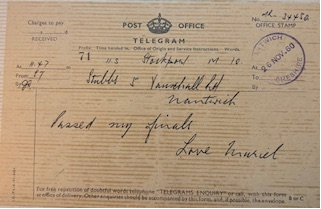 Charges to pay
RECEIVED
POST OFFICE
TELEGRAM
No.
OFFICE STAMP
Prefix. Time handed in. Office of Origin and Service Instructions. Words.
71 113 Stockport M 10
At 9.47
From 97
By
At
To
By
NANTWICH
26 NOV 60
CHESHIRE
Stubbs 5 Vauxhall Rd
Nantwich
Passed my finals
Love Muriel
For free repetition of doubtful words telephone "TELEGRAMS ENQUIRY" or call, with this form
at office of delivery. Other enquiries should be accompanied by this form, and, if possible, the envelope.
B or C